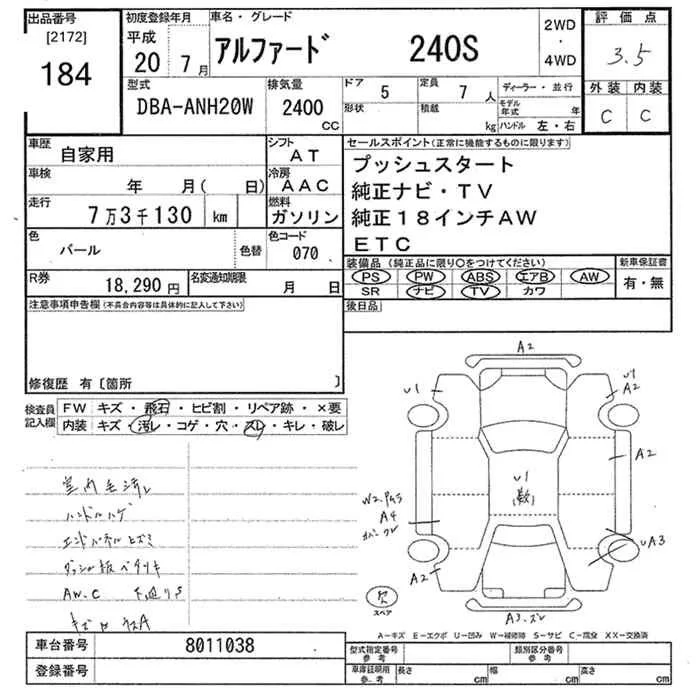 出品番号
[2172]
184
初度登録年月
平成
20 7月
車名・グレード
アルファード 240S
2WD
・
4WD
評価点
3.5
外装 内装
C C
型式
DBA-ANH20W
排気量
2400
CC
ドア 5
形状
定員 7 人
積載 kg
ディーラー・並行
モデル年式 年
ハンドル 左・右
車歴
自家用
シフト
AT
車検
年 月( 日)
冷房
AAC
走行
7万3千130 km
燃料
ガソリン
色
パール
色替
色コード
070
R券
18,290円
名変通知期限
月 日
セールスポイント(正常に機能するものに限ります)
プッシュスタート
純正ナビ・TV
純正18インチAW
ETC
装備品 (純正品に限り○をつけてください)
PS PW ABS エアB AW
SR ナビ TV カワ
新車保証書
有・無
後日品
注意事項申告欄(不具合内容等は具体的に記入して下さい)
修復歴 有〔箇所 〕
検査員
記入欄
FW キズ・飛石・ヒビ割・リペア跡・×要
内装 キズ・汚レ・コゲ・穴・スレ・キレ・破レ
ハンドルハゲ
AW.C 下廻りS
A2
U1
U1
A2
A2
U1
(数)
W2.PAS
A4
A2
UA3
A3.スレ
欠
スペア
A-キズ E-エクボ U-凹み W-補修跡 S-サビ C-腐食 XX-交換済
車台番号 8011038
登録番号
型式指定番号
参考
類別区分番号
参考
車庫証明用
参考
長さ cm
幅 cm
高さ cm